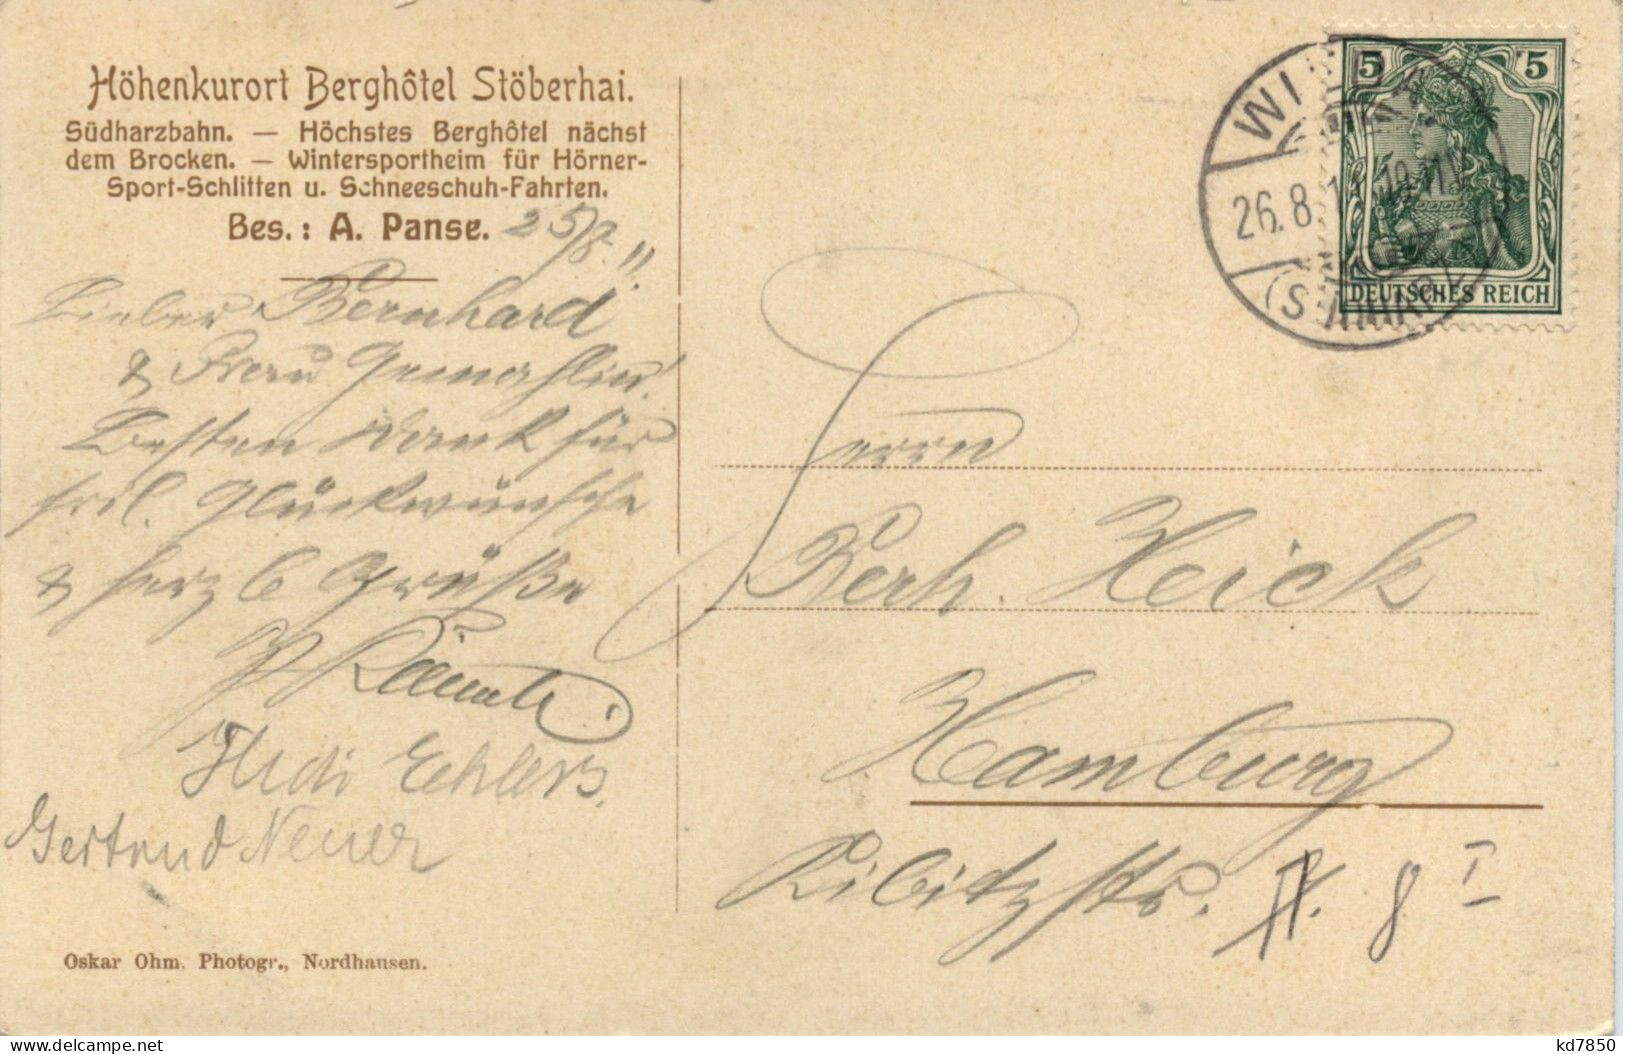 Höhenkurort Berghôtel Stöberhai.
Südharzbahn. — Höchstes Berghôtel nächst
dem Brocken. — Wintersportheim für Hörner-
Sport-Schlitten u. Schneeschuh-Fahrten.
Bes.: A. Panse.
25/8. 11.
Lieber Bernhard
& Frau Gemahlin!
Besten Dank für
frdl. Glückwünsche
& herzl Grüße
Heidi Ehlers.
Gertrud Neuer
Oskar Ohm. Photogr., Nordhausen.
5 5
DEUTSCHES REICH
26.8.
Herrn
Berh. Heick
Hamburg
Kibitzstr. 8 I
kd7850